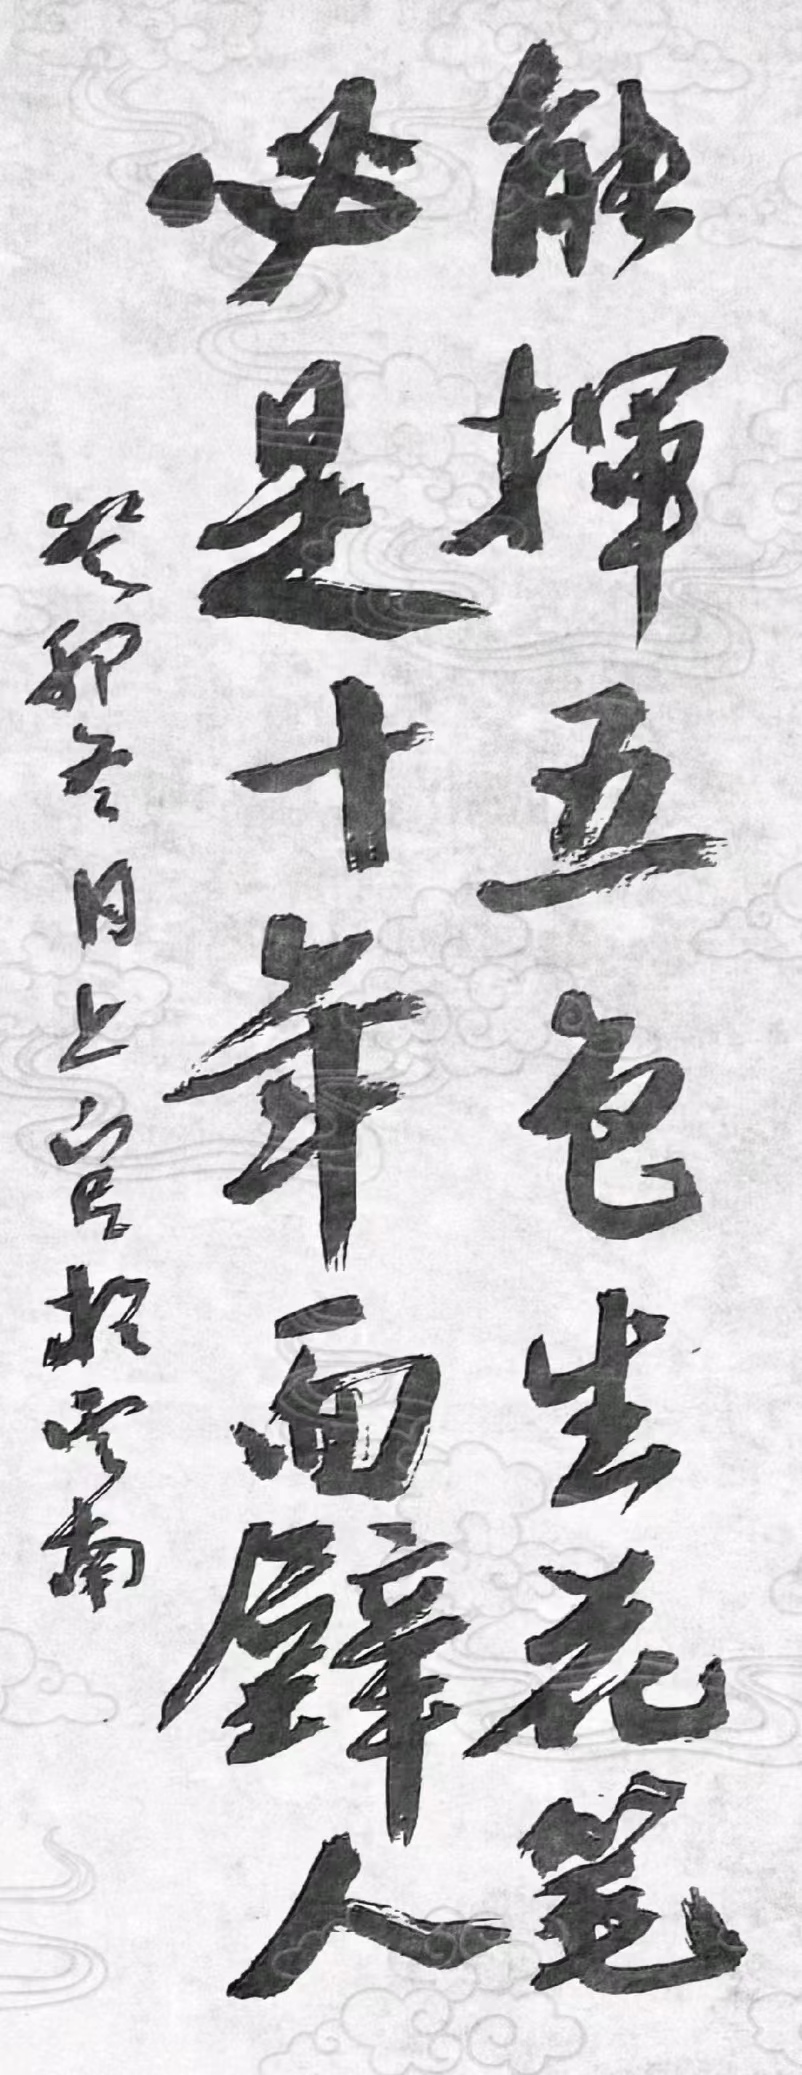 能揮五色生花笔
必是十年面壁人
癸卯冬月上官於云南